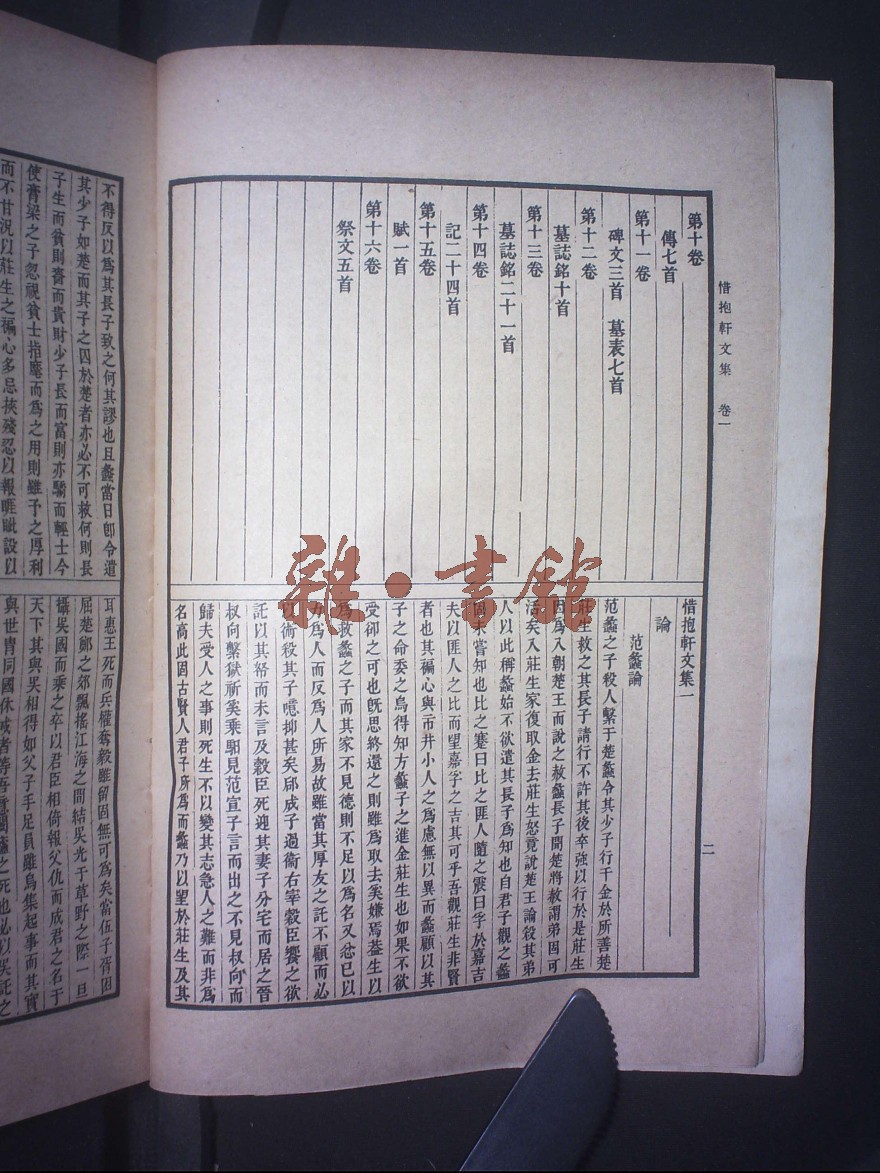 惜抱軒文集　卷一
二
第十卷
傳七首
第十一卷
碑文三首　墓表七首
第十二卷
墓誌銘十首
第十三卷
墓誌銘二十一首
第十四卷
記二十四首
第十五卷
賦一首
第十六卷
祭文五首
惜抱軒文集一
論
范蠡論
范蠡之子殺人繫于楚蠡令其少子行千金於所善楚
莊生救之其長子請行不許其後卒強以行於是莊生
因爲入朝楚王而說之赦蠡長子聞楚將赦謂弟固可
活矣入莊生家復取金去莊生怒竟說楚王論殺其弟
人以此稱蠡始不欲遣其長子爲知也自君子觀之蠡
固未嘗知也比之蹇曰比之匪人隨之震曰孚於嘉吉
夫以匪人之比而望嘉孚之吉其可乎吾觀莊生非賢
者也其褊心與市井小人之爲慮無以異而蠡顧以其
子之命委之烏得知方蠡子之進金莊生也如果不欲
受卻之可也旣思終還之則雖爲取去奚嫌焉葢生以
爲救蠡之子而其家不見德則不足以爲名又忿已以
力爲人而反爲人所易故雖當其厚友之託不顧而必
以術殺其子噫抑甚矣郈成子過衞右宰穀臣饗之欲
託以其帑而未言及穀臣死迎其妻子分宅而居之晉
叔向繫獄祈奚乘馹見范宣子言而出之不見叔向而
歸夫受人之事則死生不以變其志急人之難而非爲
名高此固古賢人君子所爲而蠡乃以望於莊生及其
不得反以爲其長子致之何其謬也且蠡當日卽令遣
其少子如楚而其子之囚於楚者亦必不可救何則長
子生而貧則嗇而貴財少子長而富則亦驕而輕士今
使膏粱之子忽視貧士指麾而爲之用則雖予之厚利
而不甘況以莊生之褊心多忌挾殘忍以報睚眦設以
耳惠王死而兵權奪毅雖留固無可爲矣當伍子胥困
屈楚鄭之郊飄搖江海之間結吳光于草野之際一旦
攝吳國而乘之卒以君臣相倚報父仇而成君之名于
天下其與吳相得如父子手足員雖烏集起事而其實
與世胄同國休戚者等吾意闔廬之死也必以吳託之
雜·書館